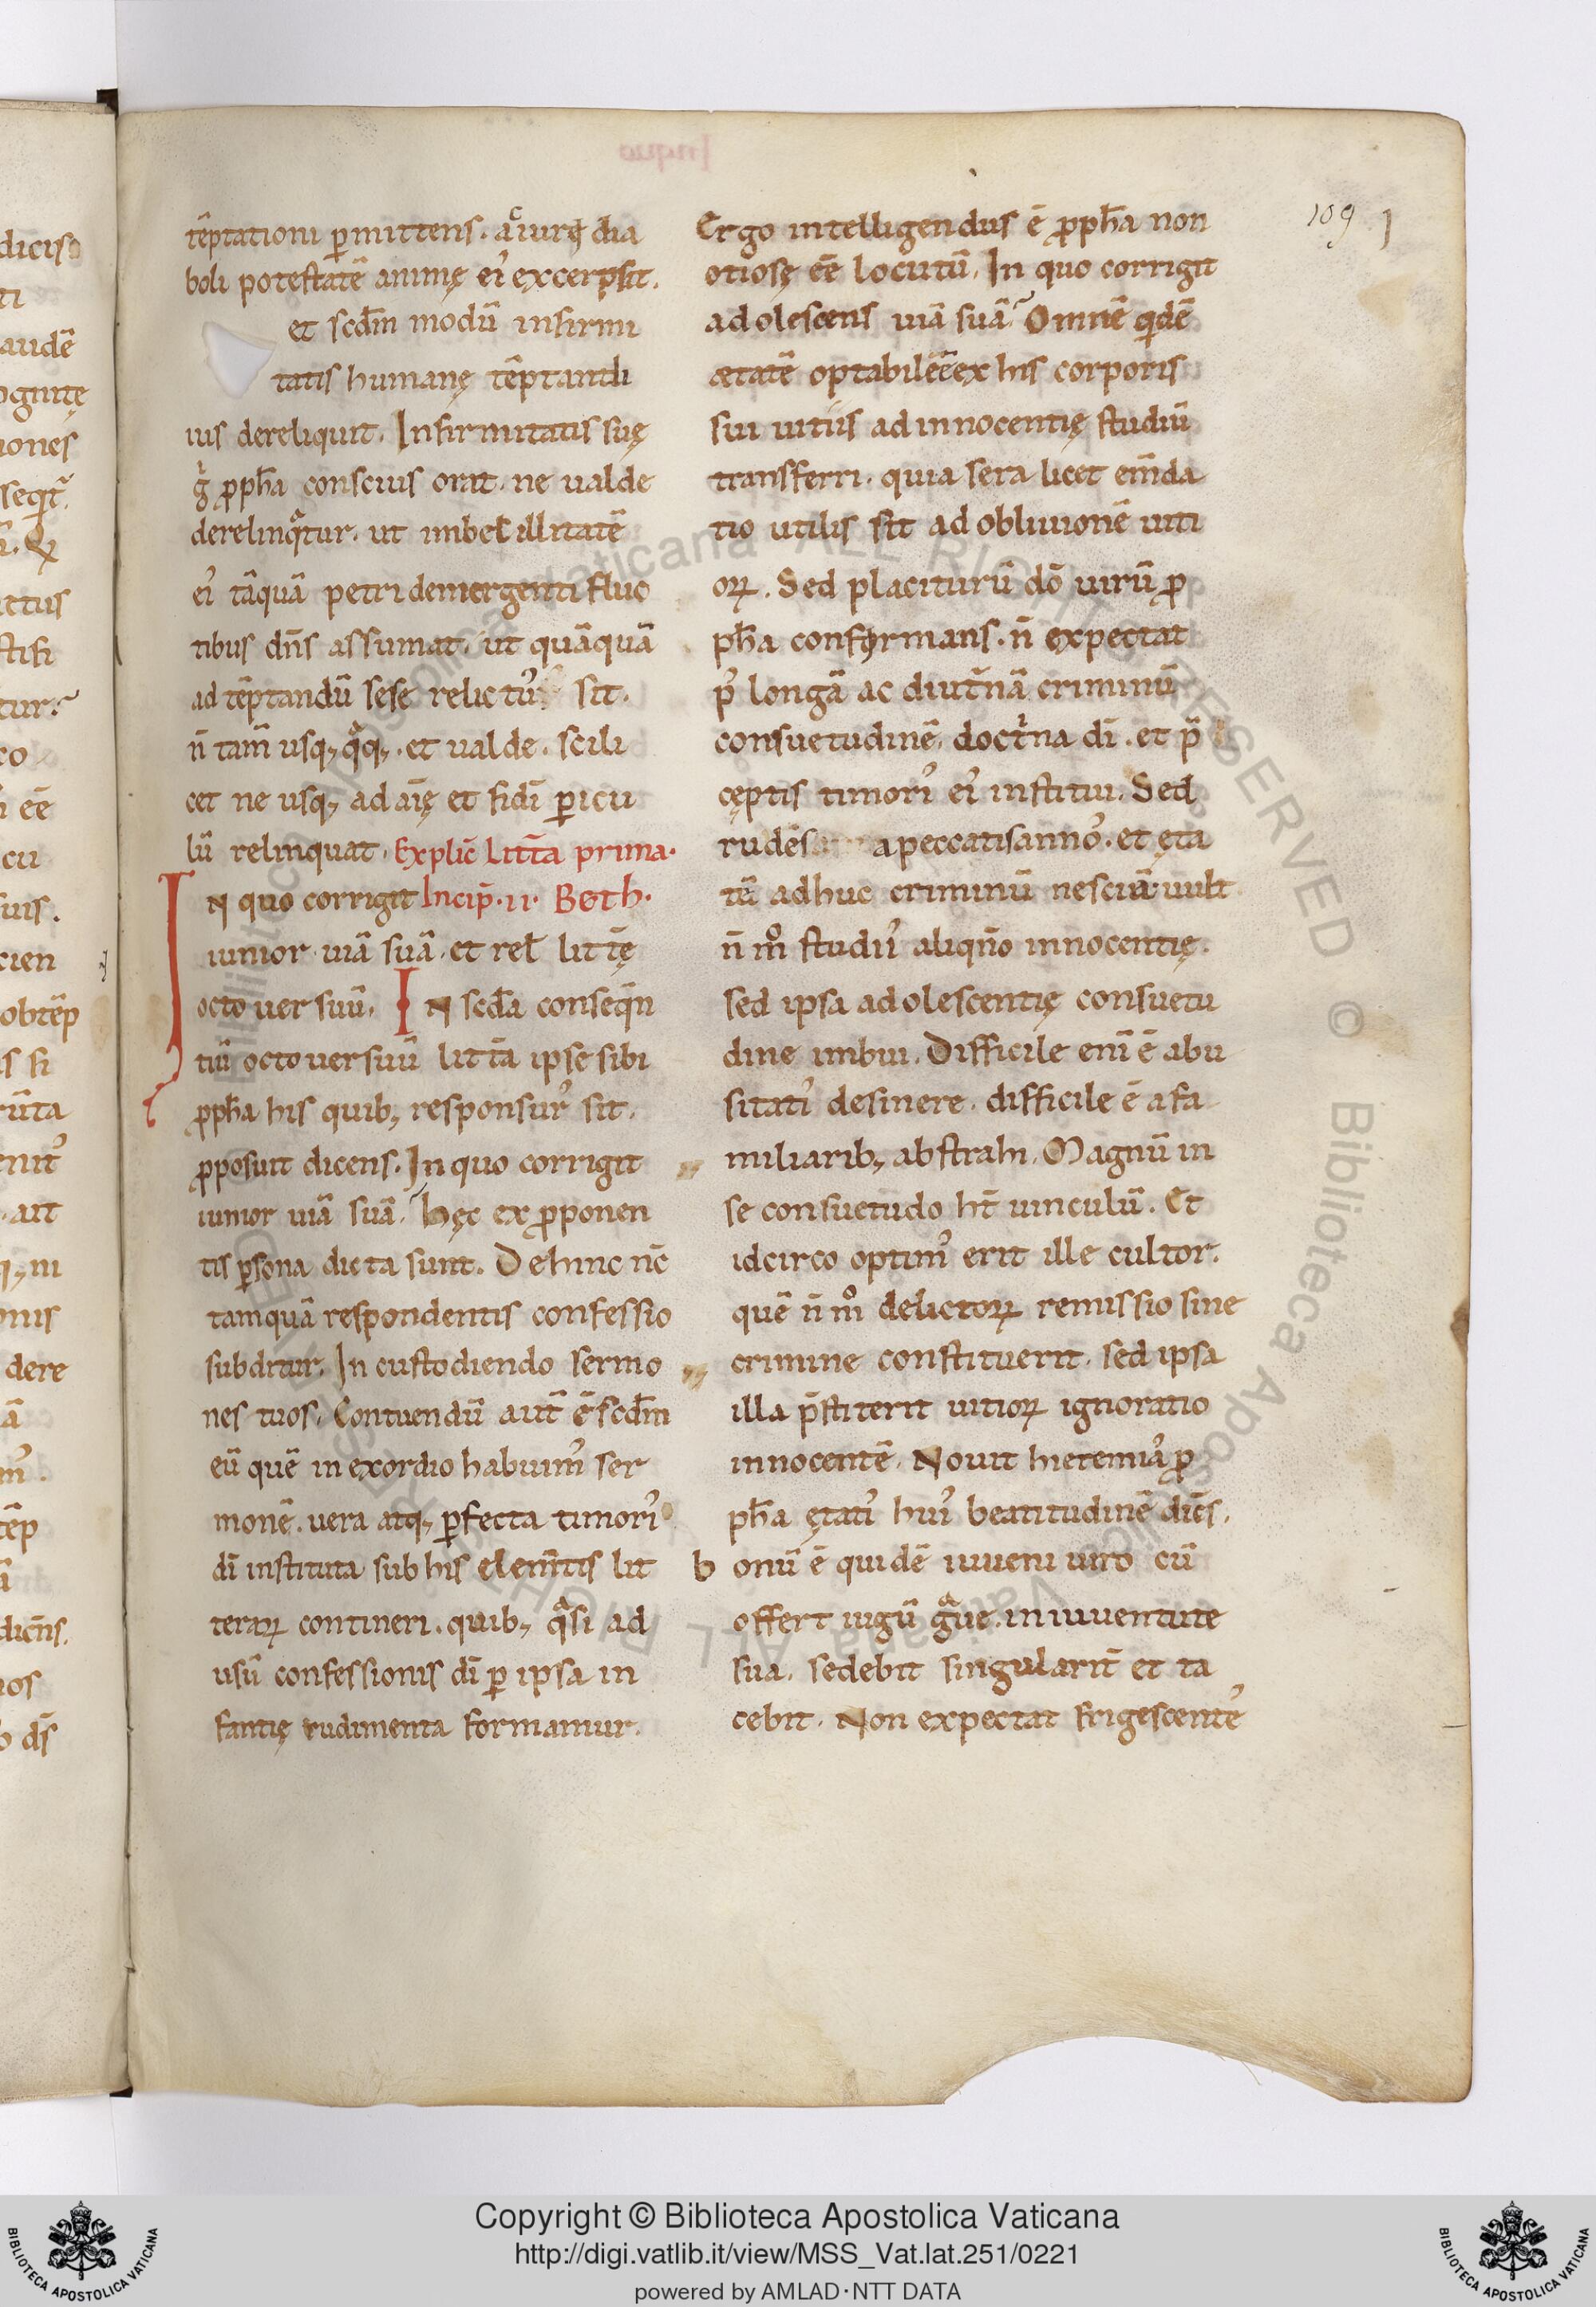 109
tēptationi ꝑmittens. a iurę dia
boli potestatē animę eiꝰ excerpsit.
et scdm̄ modū infirmi
tatis humanę tēptandi
ius dereliquit. Infirmitatis suę
g̊ ꝓph̄a conscius orat. ne ualde
derelinqͣtur. ut imbecillitatē
eiꝰ tāquā petri demergenti fluc
tibus dn̄s assumat. ut quāquā
ad tēptandū sese relictūꝰ sit.
n̄ tam̄ usq; qͣq;. et ualde. scili
cet ne usq; ad aīę et fidī ꝑicu
lū relinquat. Explic̄ Litt̄a prima.
In quo corrigit Incip̄. ii. Beth.
iunior uiā suā. et rel litt̄ę
octo uersuū. In scd̄a conseq̄n
tiū octo uersuū litt̄a ipse sibi
ꝓph̄a his quib; responsurꝰ sit.
ꝓposuit dicens. In quo corrigit
iunior uiā suā. hęc ex ꝓponen
tis ꝑsona dicta sunt. Dehinc nc̄
tamquā respondentis confessio
subditur. In custodiendo sermo
nes tuos. Contuendū aut̄ ē scdm̄
eū quē in exordio habuimꝰ ser
monē. uera atq; ꝑfecta timorꝰ
dī instituta sub his elem̄tis lit
teraꝝ contineri. quib; qͣsi ad
usū confessionis dī ꝑ ipsa in
fantię rudimenta formamur.
Ergo intelligendus ē ꝓph̄a non
otiosę eē locutū. In quo corrigit
adolescens uiā suā. Omnē qdē
ætatē optabilē eē ex his corporis
sui uitiis ad innocentię studiū
transferri. quia sera licet em̄da
tio utilis sit ad obliuionē uiti
oꝝ. Sed placiturū dō uirū ꝓ
ph̄a conformans. n̄ expectat
pꝰ longā ac diut̄nā criminū
consuetudinē. doctͥna dī. et p̄
cęptis timorꝰ eiꝰ institui. Sed
rudēs a peccatis annoꝰ. et ęta
tē adhuc criminū nesciā uult
n̄ m̊ studiūꝰ aliqn̄o innocentię.
sed ipsa adolescentię consuetu
dine imbui. Difficile enī ē abu
sitatꝰ desinere. difficile ē a fa
miliarib; abstrahi. Magnū in
se consuetudo ht̄ uinculū. Et
idcirco optimꝰ erit ille cultor.
quē n̄ m̊ delictoꝝ remissio sine
crimine constituerit. sed ipsa
illa p̄stiterit uitioꝝ ignoratio
innocentē. Nouit hieremiaꝰ ꝓ
ph̄a ętatꝰ huiꝰ beatitudinē diēs.
bonū ē quidē iuueni uiro cū
offert iugū gͣue. in iuuentute
sua. sedebit singularit̄ et ta
cebit. Non expectat frigescenteꝰ
Copyright © Biblioteca Apostolica Vaticana
http://digi.vatlib.it/view/MSS_Vat.lat.251/0221
powered by AMLAD·NTT DATA